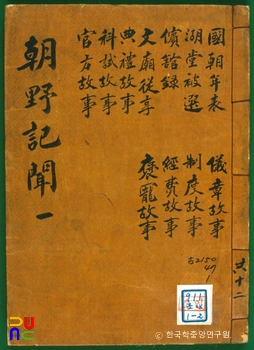 朝野記聞 一
國朝年表
湖堂被選
儐諮錄
文廟從享
典禮故事
科試故事
官方故事
儀章故事
制度故事
經費故事
褒寵故事
共十二
古2150
47
1
911
1-2
© 한국학중앙연구원